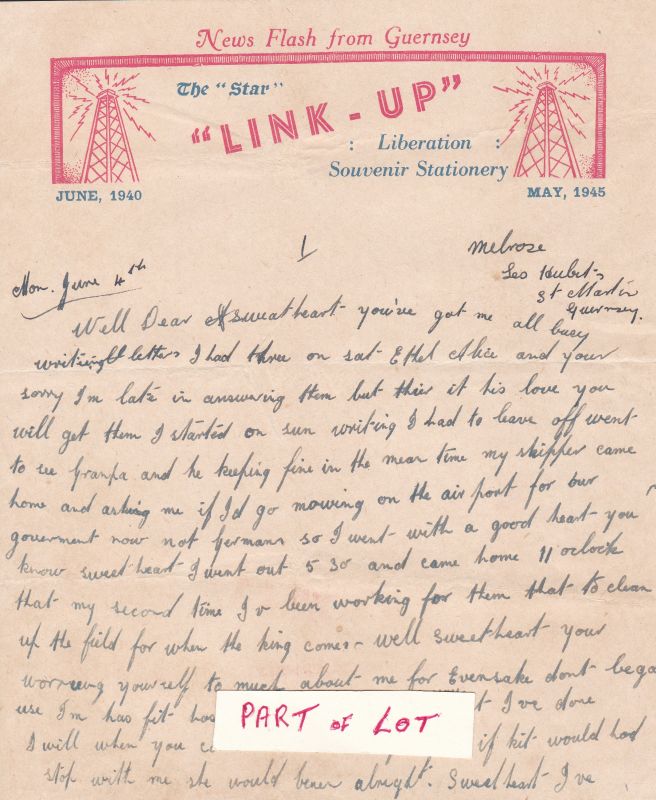 News Flash from Guernsey
The "Star"
"LINK-UP"
: Liberation :
Souvenir Stationery
JUNE, 1940
MAY, 1945
1
Melrose
Les Hubits
St Martin
Guernsey.
Mon. June 4th
Well Dear Sweatheart you've got me all busy
writing letters I had three on sat Ethel Alice and your
sorry I'm late in answering them but their it his love you
will get them I started on sun writing I had to leave off went
to see Granpa and he keeping fine in the mean time my skipper came
home and asking me if I'd go mowing on the air port for our
goverment now not germans so I went with a good heart you
know sweetheart I went out 5 30 and came home 11 oclock
that my second time Iv been working for them that to clean
up the field for when the king comes - well sweetheart your
worrieng yourself to much about me for Evensake dont bega
use I'm has fit has
I've done
I will when you
if kit would had
stop with me she would bener alright. Sweetheart I've
PART OF LOT